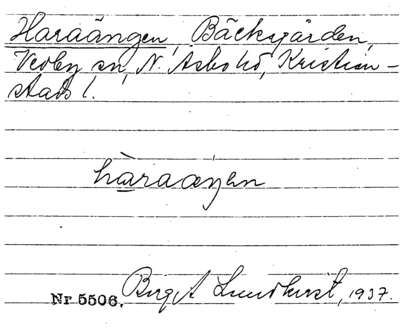 Haraängen, Bäckgården,
Vedby sn, N. Åsbo hd, Kristian-
stads l.
hàraæŋen
Nr 5506. Birgit Lundkvist, 1937.